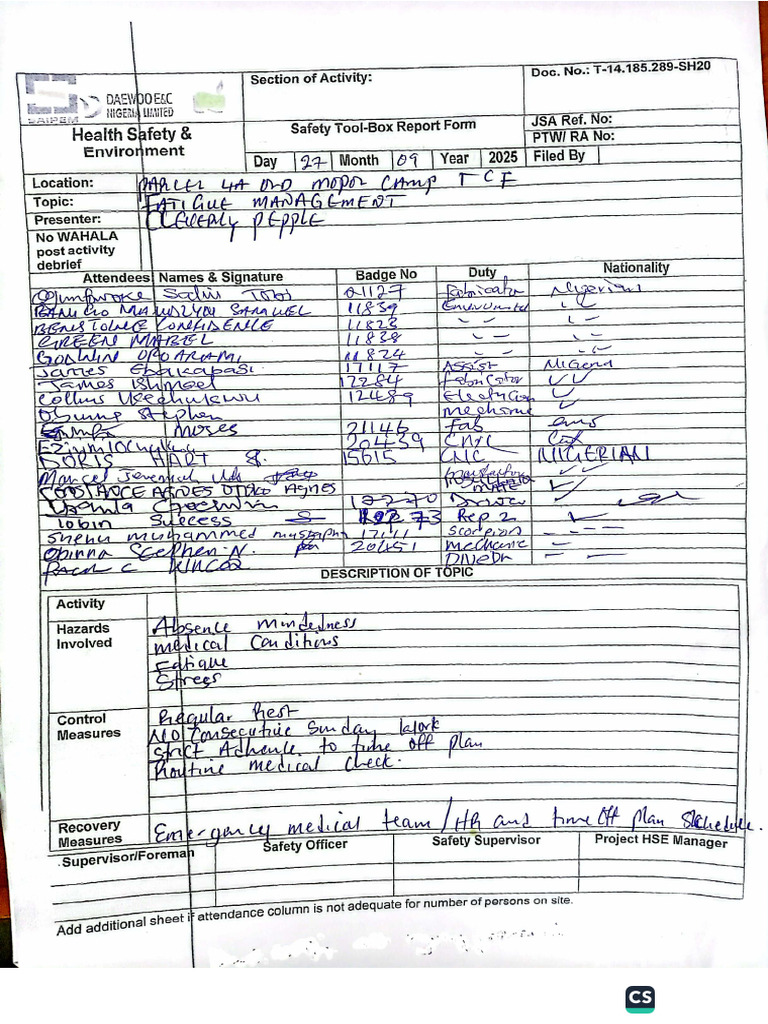 Section of Activity:
Doc. No.: T-14.185.289-SH20
SAIPEM
DAEWOO E&C
NIGERIA LIMITED
Health Safety &
Environment
Safety Tool-Box Report Form
JSA Ref. No:
PTW/ RA No:
Day 27 Month 09 Year 2025 Filed By
Location: PARCEL 4A OLD MOPOL CAMP T C F
Topic: FATIGUE MANAGEMENT
Presenter: CLEVERLY PEPPLE
No WAHALA
post activity
debrief
Attendees Names & Signature Badge No Duty Nationality
Tobi 01127 Fabricator Nigerian
SAMUEL 11839
CONFIDENCE 11823
GREEN MABEL 11838
GODWIN 11824
James Ebakapasi 17117 Assist NIGERIA
James Ishmael 12284 Fabricator
Collins Ukechukwu 12489 Electrician
Stephen mechanic
Moses 21146 Fab
20439
DORIS HART 15615 CNC NIGERIAN
Marcel Jeremiah
CONSTANCE AGNES AGNES
12270 Driver
Tobin Success 73 Rep 2
Shehu muhammed mustapha
Obinna Stephen N. 20451 mechanic
DESCRIPTION OF TOPIC
Activity
Hazards
Involved
Absence mindedness
medical Conditions
Fatigue
Stress
Control
Measures
Regular Rest
NO Consecutive Sunday Work
Strict Adhence to time off plan
Routine medical check.
Recovery
Measures
Emergency medical team / HR and time off plan Schedule.
Supervisor/Foreman Safety Officer Safety Supervisor Project HSE Manager
Add additional sheet if attendance column is not adequate for number of persons on site.
CS